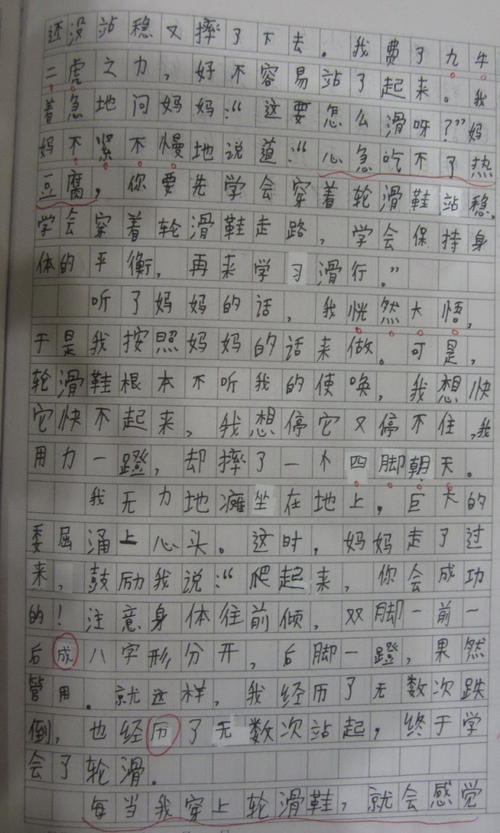 还没站稳又摔了下去。我费了九牛
二虎之力，好不容易站了起来。我
着急地问妈妈：“这要怎么滑呀？”妈
妈不紧不慢地说道：“心急吃不了热
豆腐，你要先学会穿着轮滑鞋站稳，
学会穿着轮滑鞋走路，学会保持身
体的平衡，再来学习滑行。”
听了妈妈的话，我恍然大悟，
于是我按照妈妈的话来做。可是，
轮滑鞋根本不听我的使唤，我想快
它快不起来，我想停它又停不住，我
用力一蹬，却摔了一个四脚朝天。
我无力地瘫坐在地上，巨大的
委屈涌上心头。这时，妈妈走了过
来，鼓励我说：“爬起来，你会成功
的！注意身体往前倾，双脚一前一
后成八字形分开，后脚一蹬，果然
管用。就这样，我经历了无数次跌
倒，也经历了无数次站起，终于学
会了轮滑。
每当我穿上轮滑鞋，就会感觉